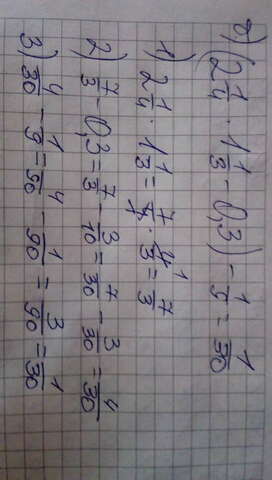 в) (2 1/4 · 1 1/3 - 0,3) - 1/9 = 1/30
1) 2 1/4 · 1 1/3 = 7/4 · 4/3 1 = 7/3
2) 7/3 - 0,3 = 7/3 - 3/10 = 7/30 - 3/30 = 4/30
3) 4/30 - 1/9 = 4/90 - 1/90 = 3/90 = 1/30